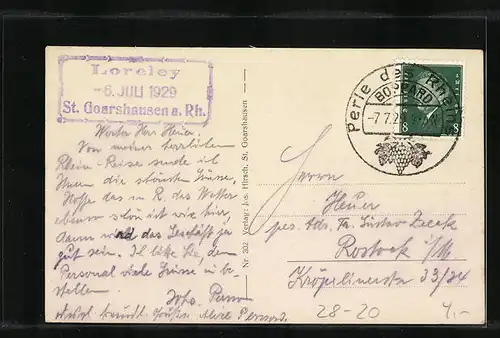 Loreley
-6. JULI 1929
St. Goarshausen a. Rh.
Perle des Rheins
BOPPARD
-7.7.29
8 8
Werter Herr Heuer.
Von meiner herrlichen
Rhein-Reise sende ich
Ihnen die schönsten Grüsse,
Hoffe das in R. das Wetter
ebenso schön ist wie hier,
dann wird das Geschäft ja
gut sein. Ich bitte Sie, dem
Personal viele Grüsse zu be-
stellen.
Nr. 302 Verlag: Jos. Hirsch, St. Goarshausen
Herrn
Heuer
pr. Adr. Fa. Gustav Zeeck
Rostock i/M
Kröpelinerstr. 33/34
28-20
4,-